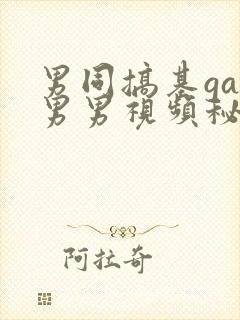 男同搞基ga
男男視頻秘
阿拉奇